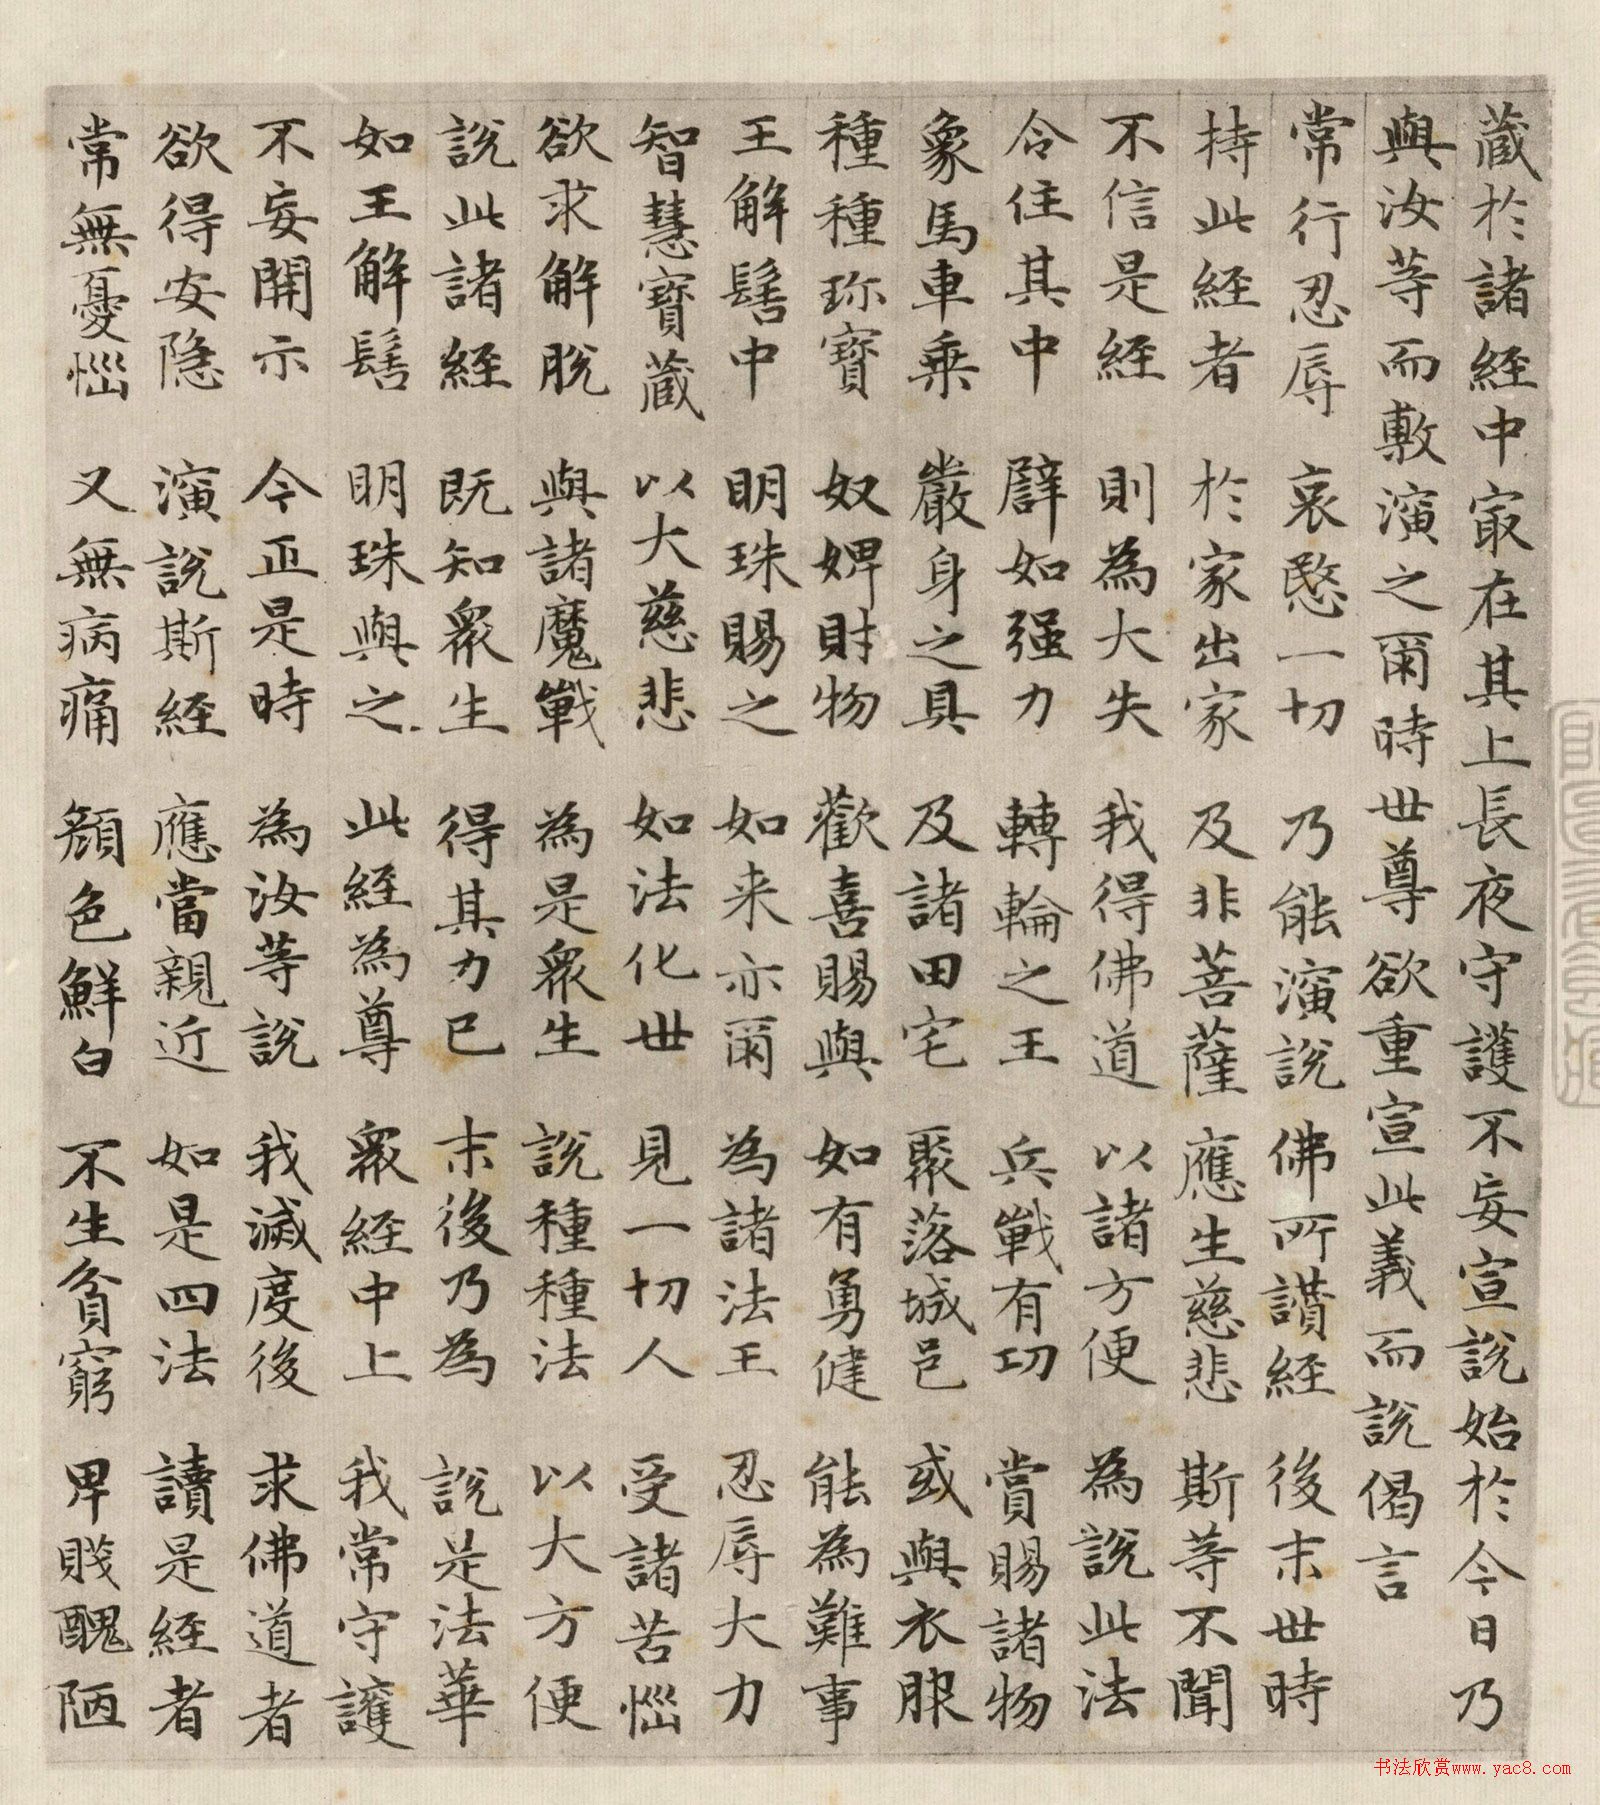 藏於諸経中冣在其上長夜守護不妄宣說始於今日乃
與汝等而敷演之爾時世尊欲重宣此義而說偈言
常行忍辱 哀愍一切 乃能演說 佛所讃経 後末世時
持此経者 於家出家 及非菩薩 應生慈悲 斯等不聞
不信是経 則為大失 我得佛道 以諸方便 為說此法
令住其中 辟如强力 轉輪之王 兵戰有功 賞賜諸物
象馬車乗 嚴身之具 及諸田宅 聚落城邑 或與衣服
種種珎寳 奴婢財物 歡喜賜與 如有勇健 能為難事
王解髻中 明珠賜之 如来亦爾 為諸法王 忍辱大力
智慧寳藏 以大慈悲 如法化世 見一切人 受諸苦惱
欲求解脫 與諸魔戰 為是衆生 說種種法 以大方便
說此諸経 既知衆生 得其力已 末後乃為 說是法華
如王解髻 明珠與之 此経為尊 衆経中上 我常守護
不妄開示 今正是時 為汝等說 我滅度後 求佛道者
欲得安隐 演說斯経 應當親近 如是四法 讀是経者
常無憂惱 又無病痛 顏色鮮白 不生貧窮 卑賤醜陋
书法欣赏www.yac8.com